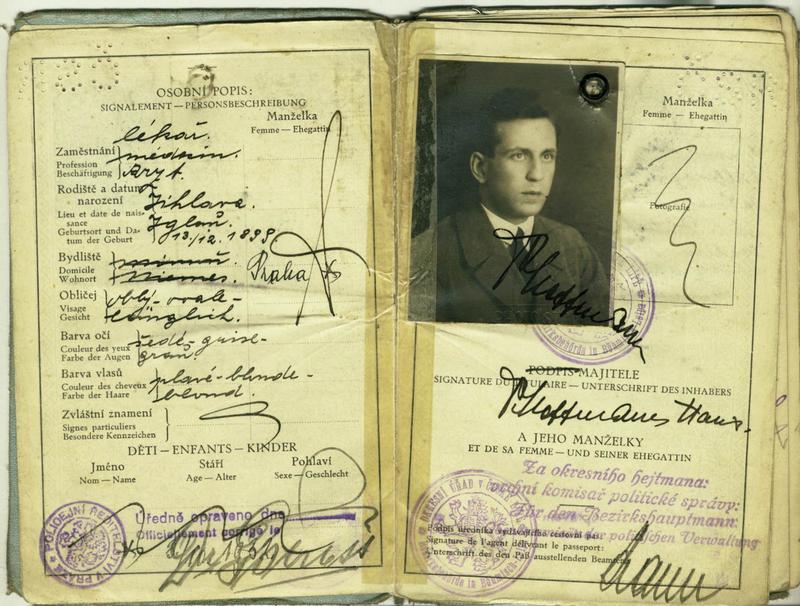 OSOBNÍ POPIS:
SIGNALEMENT — PERSONSBESCHREIBUNG
Manželka
Femme — Ehegattin
lékař.
Zaměstnání
Profession
Beschäftigung
médecin.
Arzt.
Rodiště a datum
narození
Lieu et date de nais-
sance
Geburtsort und Da-
tum der Geburt
Jihlava
Iglau
13./12. 1899.
Bydliště
Domicile
Wohnort
Mimoň
Niemes
Praha
Obličej
Visage
Gesicht
obl.- ovale-
länglich.
Barva očí
Couleur des yeux
Farbe der Augen
šedé- grise-
grau.
Barva vlasů
Couleur des cheveux
Farbe der Haare
plavé- blonde-
blond.
Zvláštní znamení
Signes particuliers
Besondere Kennzeichen
DĚTI — ENFANTS — KINDER
Jméno
Nom — Name
Stáří
Age — Alter
Pohlaví
Sexe — Geschlecht
POLICEJNÍ ŘEDITELSTVÍ V PRAZE
Úředně opraveno dne
Officiellement corrigé le
Manželka
Femme — Ehegattin
Fotografie
Hoffmann
PODPIS MAJITELE
SIGNATURE DU TITULAIRE — UNTERSCHRIFT DES INHABERS
Hoffmann Hans.
A JEHO MANŽELKY
ET DE SA FEMME — UND SEINER EHEGATTIN
Za okresního hejtmana:
vrchní komisař politické správy:
Für den Bezirkshauptmann:
der politischen Verwaltung
Podpis úředníka vydávajícího cestovní pas:
Signature de l'agent délivrant le passeport:
Unterschrift des den Paß ausstellenden Beamten: